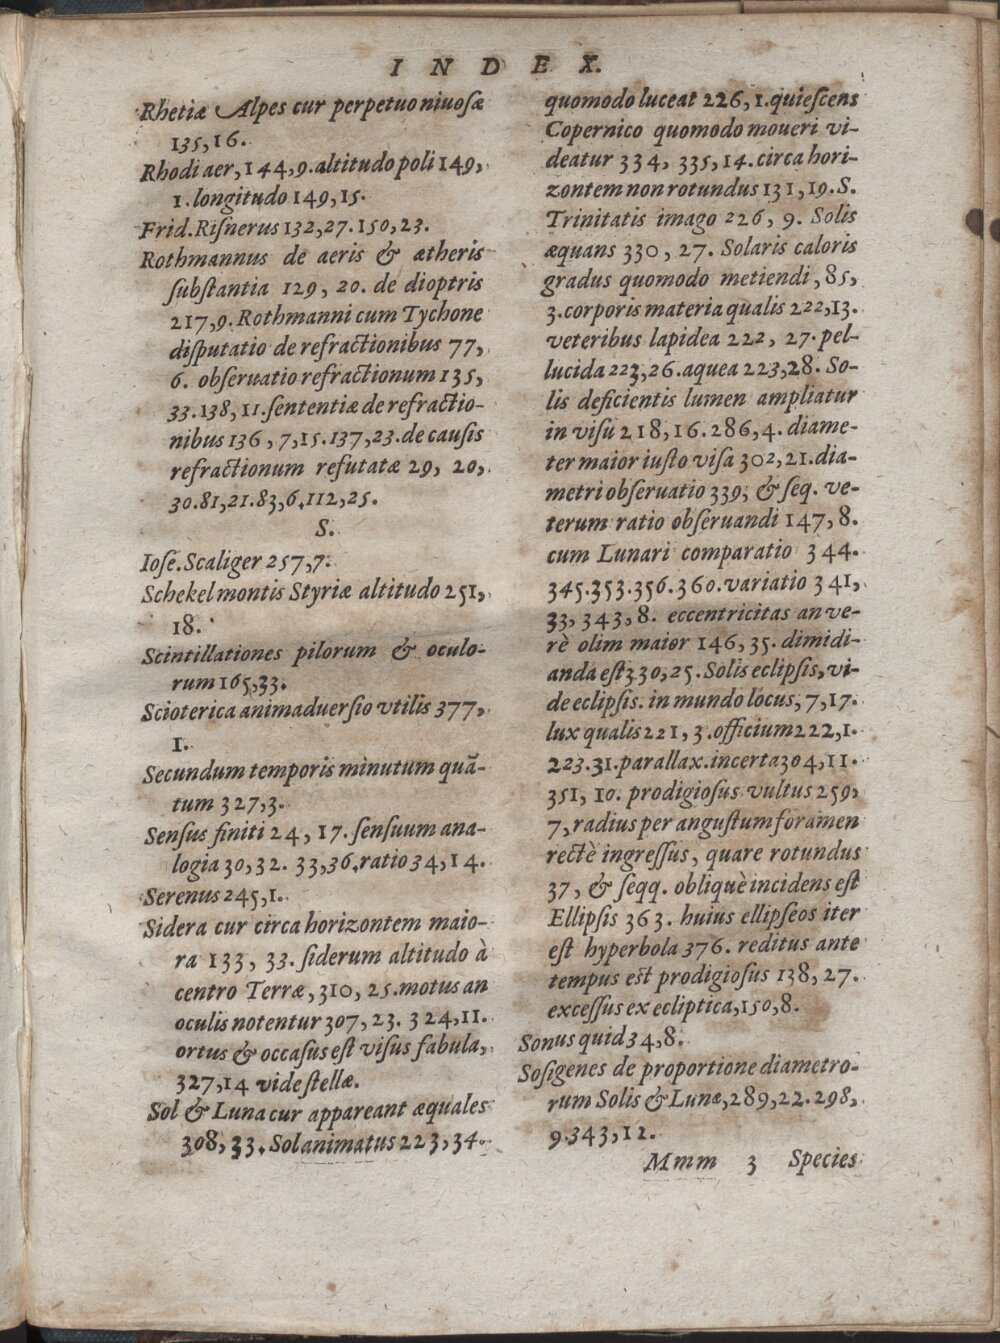 INDEX.
Rhetiæ Alpes cur perpetuo niuosæ
135,16.
Rhodi aer, 144,9. altitudo poli 149,
1. longitudo 149,15.
Frid. Risnerus 132,27. 150,23.
Rothmannus de aeris & ætheris
substantia 129, 20. de dioptris
217,9. Rothmanni cum Tychone
disputatio de refractionibus 77,
6. obseruatio refractionum 135,
33. 138, 11. sententiæ de refractio-
nibus 136, 7, 15. 137, 23. de causis
refractionum refutatæ 29, 20,
30. 81, 21. 83, 6, 112, 25.
S.
Iose. Scaliger 257,7.
Schekel montis Styriæ altitudo 251,
18.
Scintillationes pilorum & oculo-
rum 165,33.
Scioterica animaduersio vtilis 377,
1.
Secundum temporis minutum quã-
tum 327,3.
Sensus finiti 24, 17. sensuum ana-
logia 30,32. 33,36, ratio 34, 14.
Serenus 245, 1.
Sidera cur circa horizontem maio-
ra 133, 33. siderum altitudo à
centro Terræ, 310, 25. motus an
oculis notentur 307, 23. 324, 11.
ortus & occasus est visus fabula,
327,14 vide stellæ.
Sol & Luna cur appareant æquales
308, 33. Sol animatus 223, 34.
quomodo luceat 226, 1. quiescens
Copernico quomodo moueri vi-
deatur 334, 335, 14. circa hori-
zontem non rotundus 131, 19. S.
Trinitatis imago 226, 9. Solis
æquans 330, 27. Solaris caloris
gradus quomodo metiendi, 85,
3. corporis materia qualis 222,13.
veteribus lapidea 222, 27. pel-
lucida 223, 26. aquea 223,28. So-
lis deficientis lumen ampliatur
in visu 218, 16. 286, 4. diame-
ter maior iusto visa 302, 21. dia-
metri obseruatio 339, & seq. ve-
terum ratio obseruandi 147, 8.
cum Lunari comparatio 344.
345. 353. 356. 360. variatio 341,
33, 343, 8. eccentricitas an ve-
rè olim maior 146, 35. dimidi-
anda est 330, 25. Solis eclipsis, vi-
de eclipsis. in mundo locus, 7, 17.
lux qualis 221, 3. officium 222, 1.
223. 31. parallax. incerta 304, 11.
351, 10. prodigiosus vultus 259,
7, radius per angustum foramen
rectè ingressus, quare rotundus
37, & seqq. obliquè incidens est
Ellipsis 363. huius ellipseos iter
est hyperbola 376. reditus ante
tempus est prodigiosus 138, 27.
excessus ex ecliptica, 150, 8.
Sonus quid 34, 8.
Sosigenes de proportione diametro-
rum Solis & Lunæ, 289, 22. 298,
9. 343, 12.
Mmm 3 Species